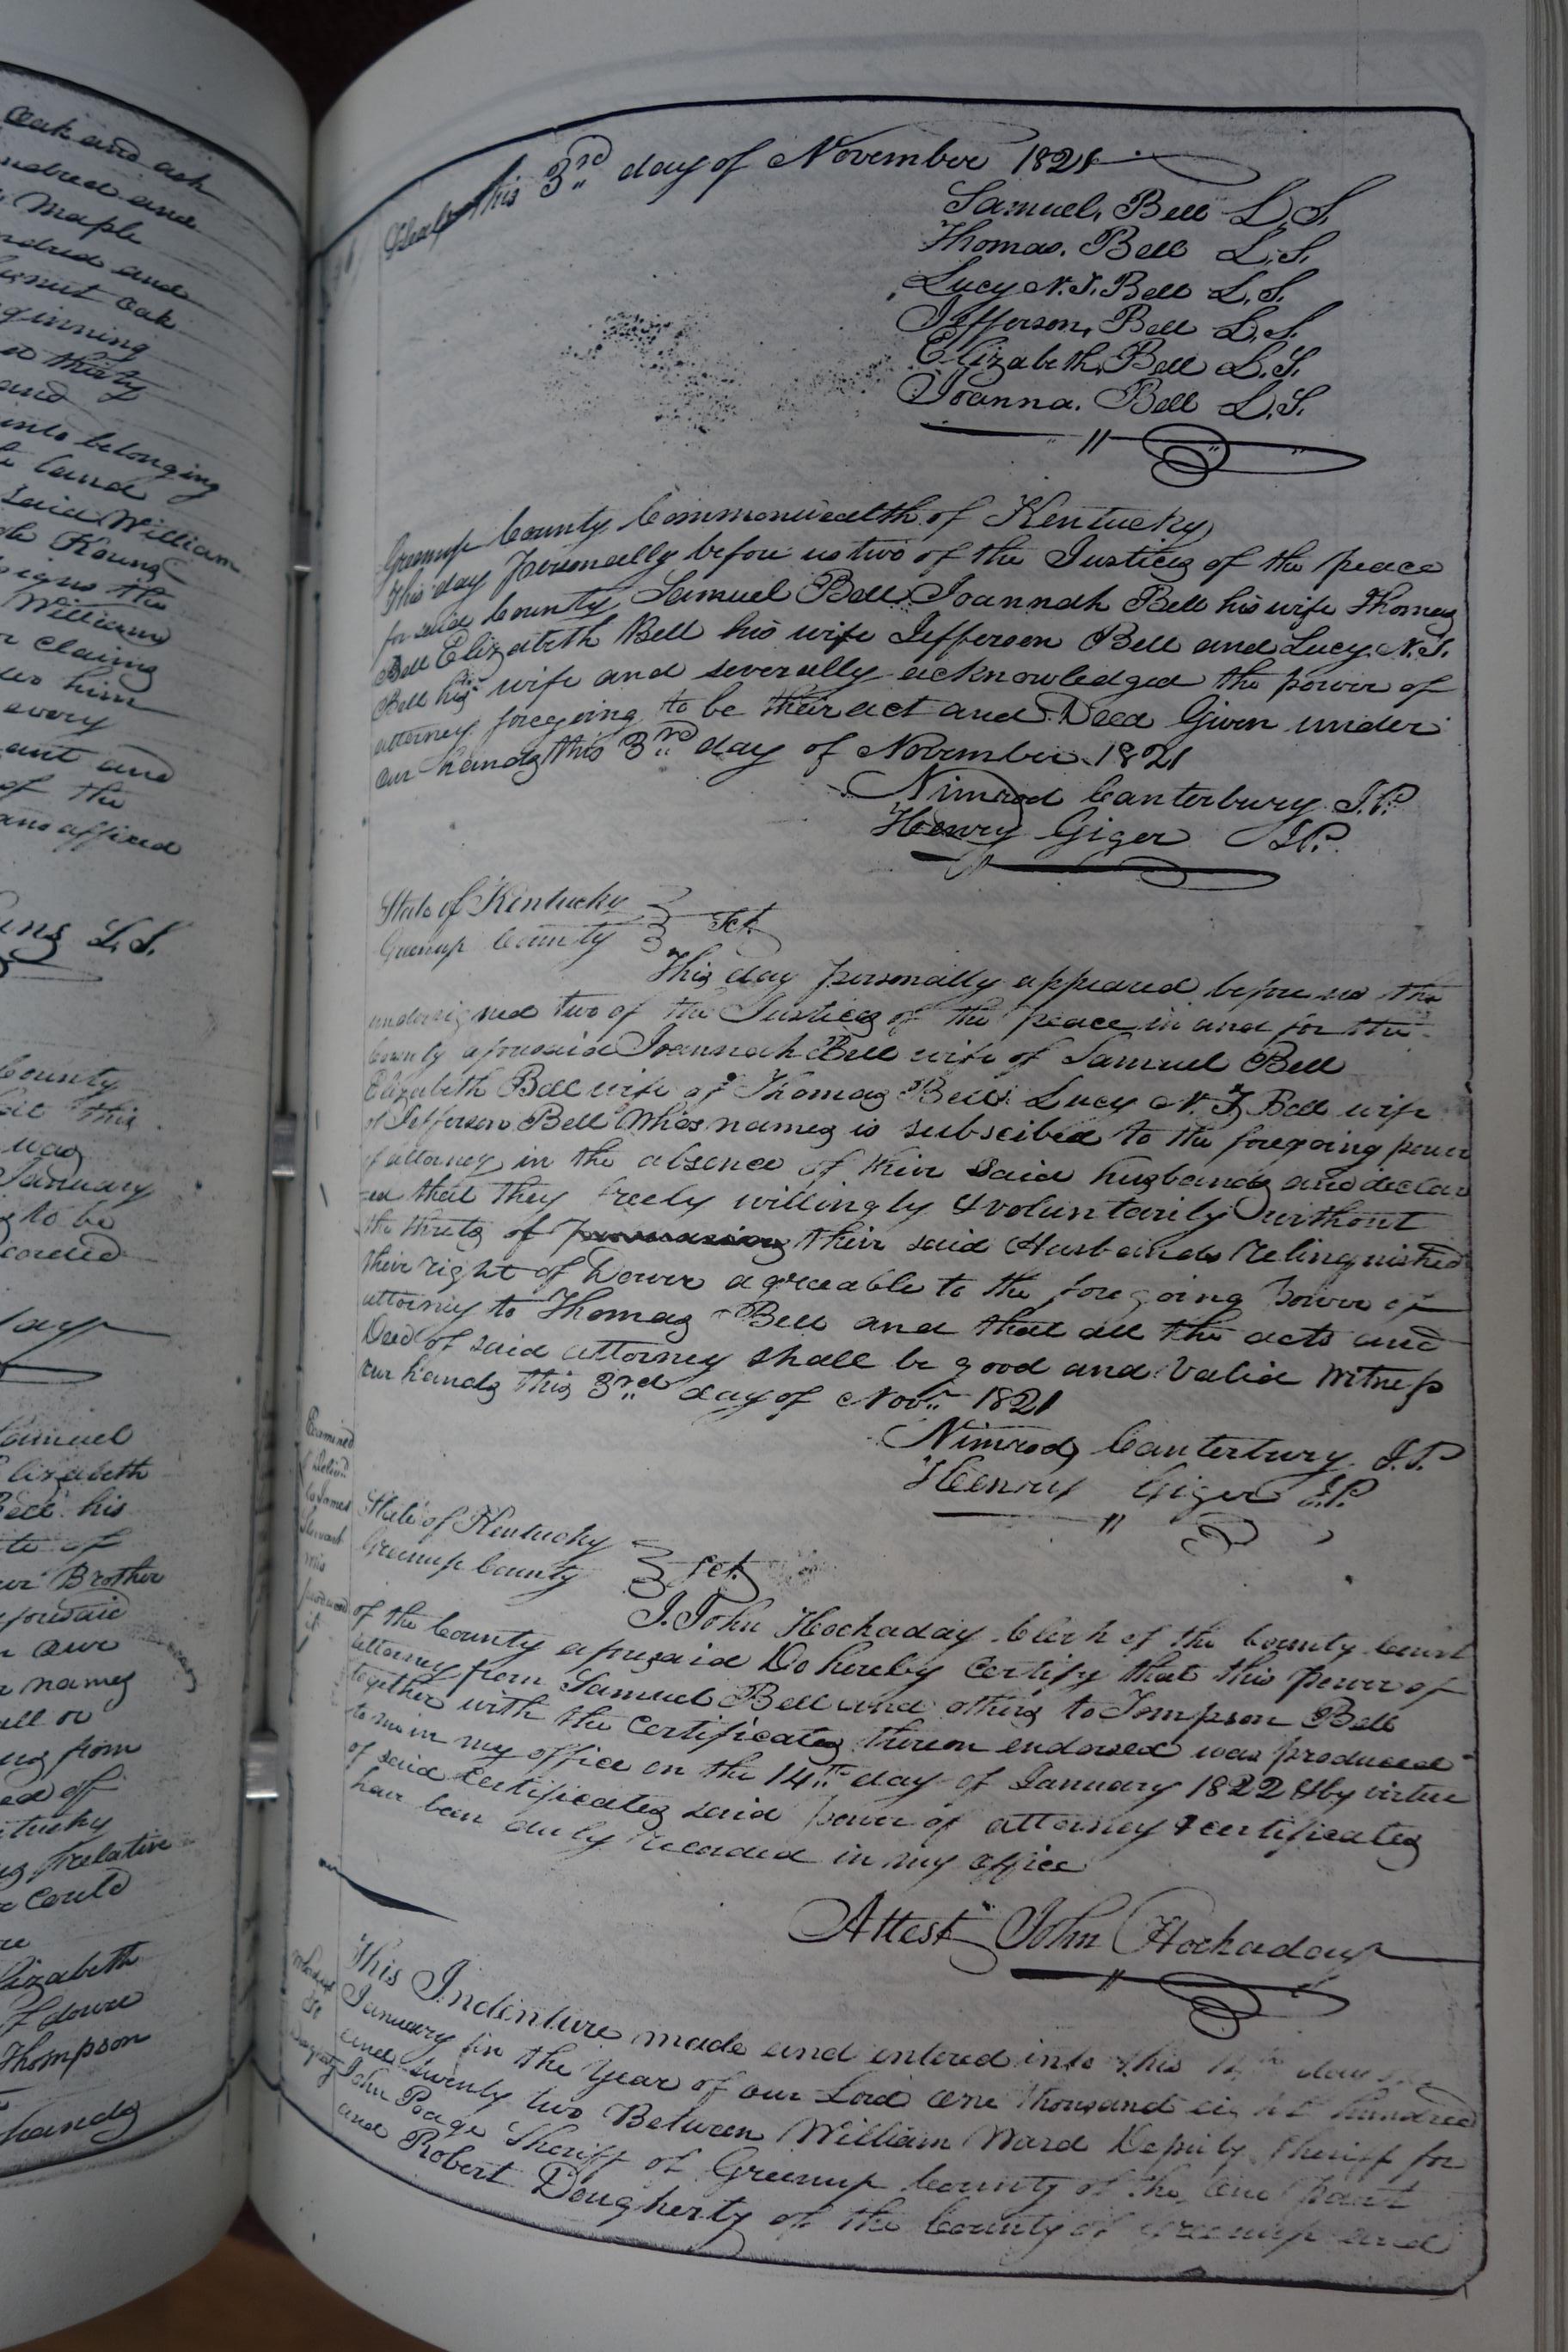 oak and ash
undred and
Maple
ndred and
esnut oak
ginning
thirty
and
into belonging
land
said William
Young
signs the
William
claims
him
every
ant and
of the
and affixed
L.S.
County
this
was
January
to be
corded
Samuel
Elizabeth
Bell his
of
our Brother
aforesaid
our
names
all or
from
of
relative
could
Elizabeth
dower
Thompson
hands
Seals this 3rd day of November 1821
Samuel, Bell L.S.
Thomas. Bell L.S.
Lucy N. T. Bell L.S.
Jefferson, Bell L.S.
Elizabeth, Bell L.S.
Joanna. Bell L.S.
Greenup County Commonwealth of Kentucky,
This day Personally before us two of the Justices of the peace
for said County, Samuel Bell Joannah Bell his wife Thomas
Bell Elizabeth Bell his wife Jefferson Bell and Lucy N. T.
Bell his wife and severally acknowledged the power of
attorney foregoing to be their act and Deed Given under
our hands this 3rd day of November 1821
Nimrod Canterbury J.P.
Henry Giger J.P.
State of Kentucky
Greenup County Sct.
This day personally appeared before us the
undersigned two of the Justices of the peace in and for the
County aforesaid Joannah Bell wife of Samuel Bell
Elizabeth Bell wife of Thomas Bell Lucy N. T. Bell wife
of Jefferson Bell Whos names is subscibed to the foregoing power
of attorney in the absence of their said husbands and declar
ed that they freely willingly & voluntarily without
the threts of their said Husbands relinquished
their right of Dower agreeable to the foregoing Power of
attorney to Thomas Bell and that all the acts and
Deed of said attorney shall be good and valid Witness
our hands this 3rd day of Novr. 1821
Nimrod Canterbury. J.P.
Henry Giger J.P.
Examined
& Delivd
to James
Stewart
who
produced
it
State of Kentucky
Greenup County Sct.
I. John Hockaday Clerk of the County Court
of the County aforesaid Do hereby Certify that this Power of
attorney from Samuel Bell and others to Tompson Bell
together with the Certificates thereon endorsed was produced
to me in my office on the 14th day of January 1822 & by virtue
of said Certificates said power of attorney & certificates
have been duly recorded in my office
Attest John Hockaday
This Indenture made and entered into this day
January in the year of our Lord One thousand eight hundred
and twenty two Between William Ward Deputy Sheriff for
John Poage Sheriff of Greenup County of the one part
and Robert Dougherty of the County of Greenup and